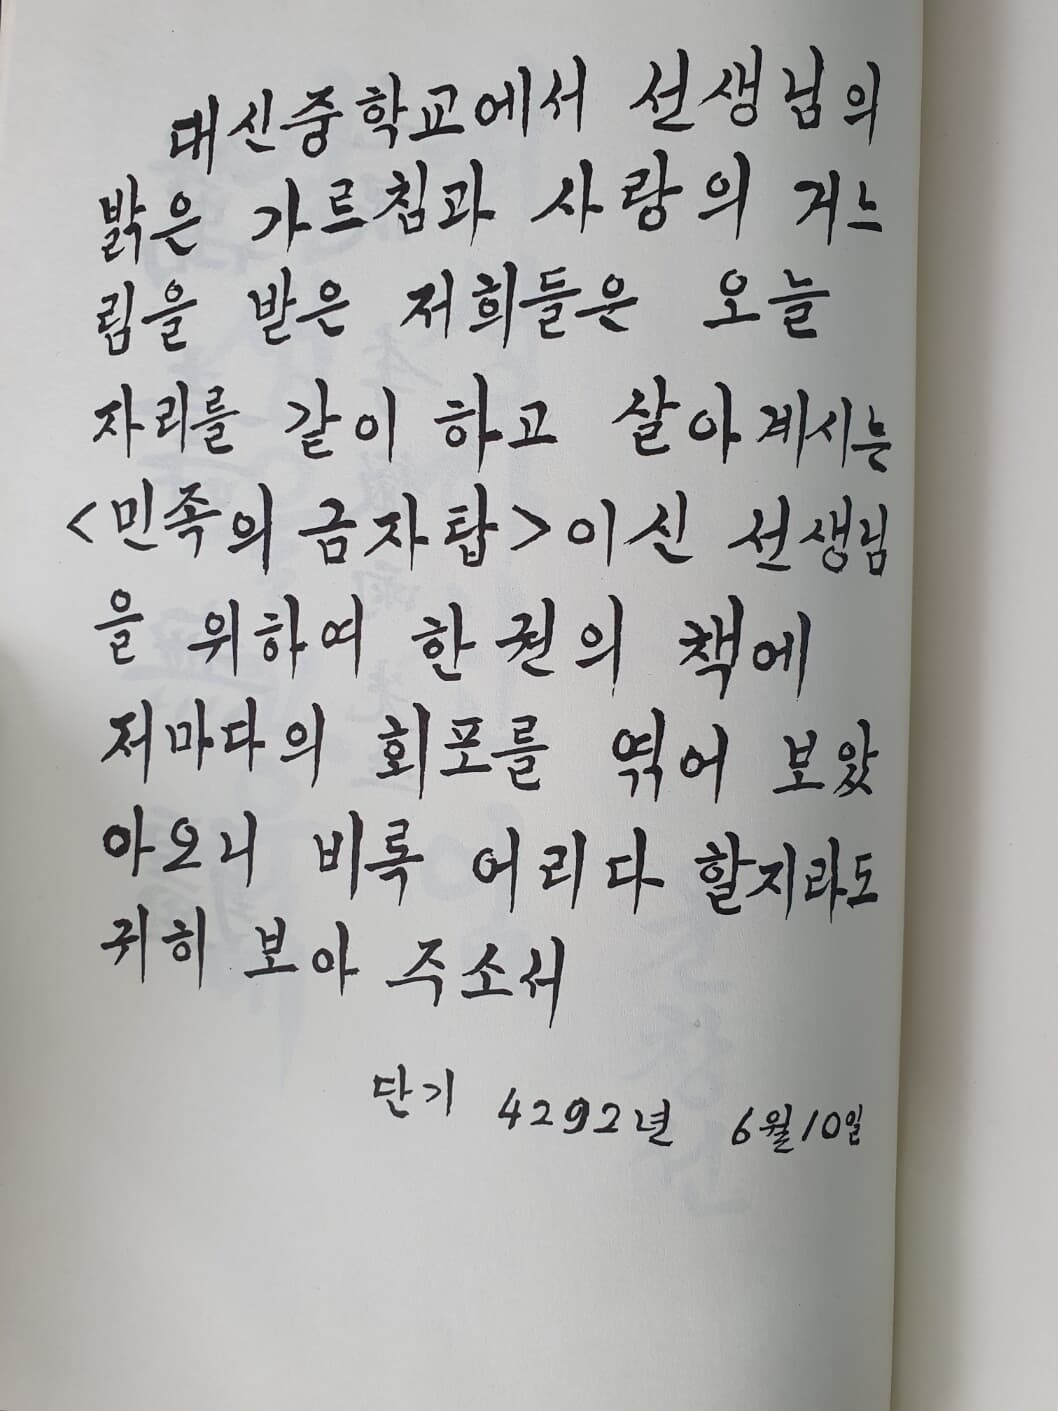 대신중학교에서 선생님의
밝은 가르침과 사랑의 거느
림을 받은 저희들은 오늘
자리를 같이 하고 살아계시는
<민족의 금자탑>이신 선생님
을 위하여 한 권의 책에
저마다의 회포를 엮어 보았
아오니 비록 어리다 할지라도
귀히 보아 주소서
단기 4292년 6월10일